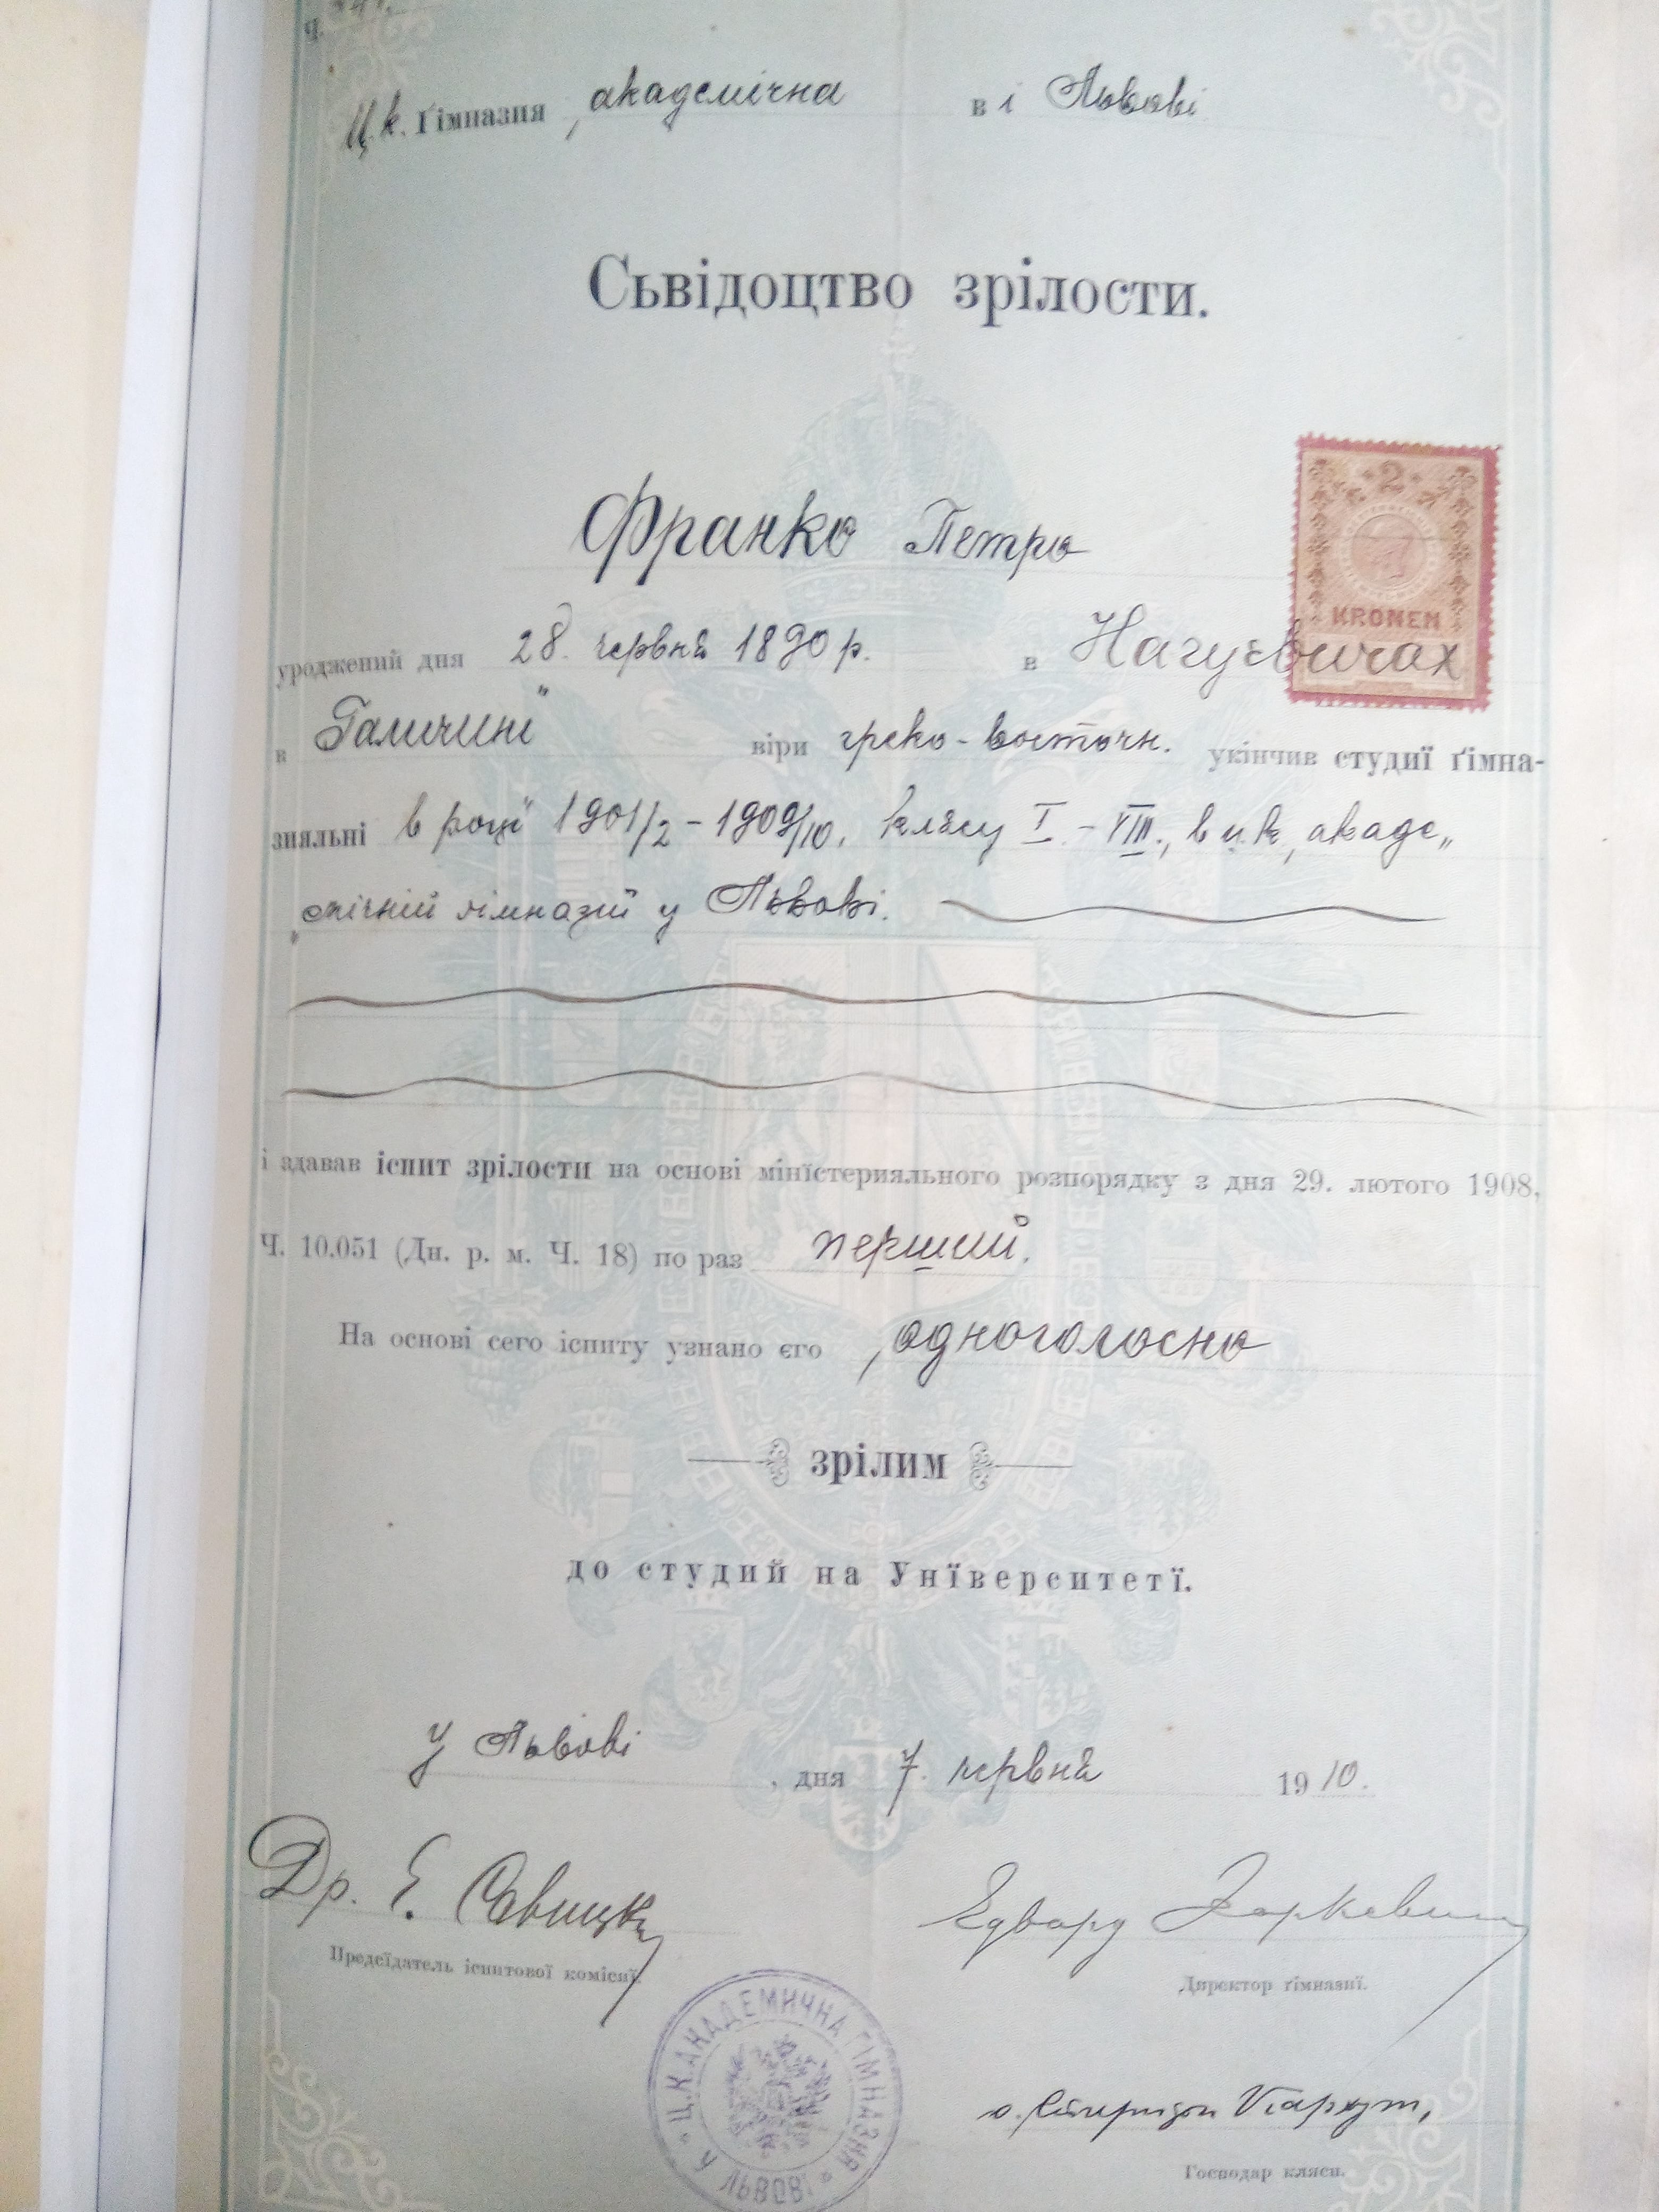 Ч.
Ц.к. Ґімназия академічна в і Львові
Сьвідоцтво зрілости.
2
KRONEN
Франко Петро
уроджений дня 28. червня 1890 р. в Нагуєвичах
в Галичинї віри греко-восточн. укінчив студиї ґімна-
зияльні в роцї 1901/2 - 1909/10, клясу I. - VIII., в ц.к. акаде„
„мічній ґімназиї у Львові.
і здавав іспит зрілости на основі мінїстерияльного розпорядку з дня 29. лютого 1908,
Ч. 10.051 (Дн. р. м. Ч. 18) по раз перший.
На основі сего іспиту узнано єго одноголосно
зрілим
до студий на Унїверситетї.
у Львові, дня 7. червня 1910.
Др. Е. Савицкі Едвард Харкевич
Предсїдатель іспитової комісиї. Директор ґімназиї.
Ц.К.АКАДЕМИЧНА ҐІМНАЗИЯ У ЛЬВОВІ
Господар кляси.